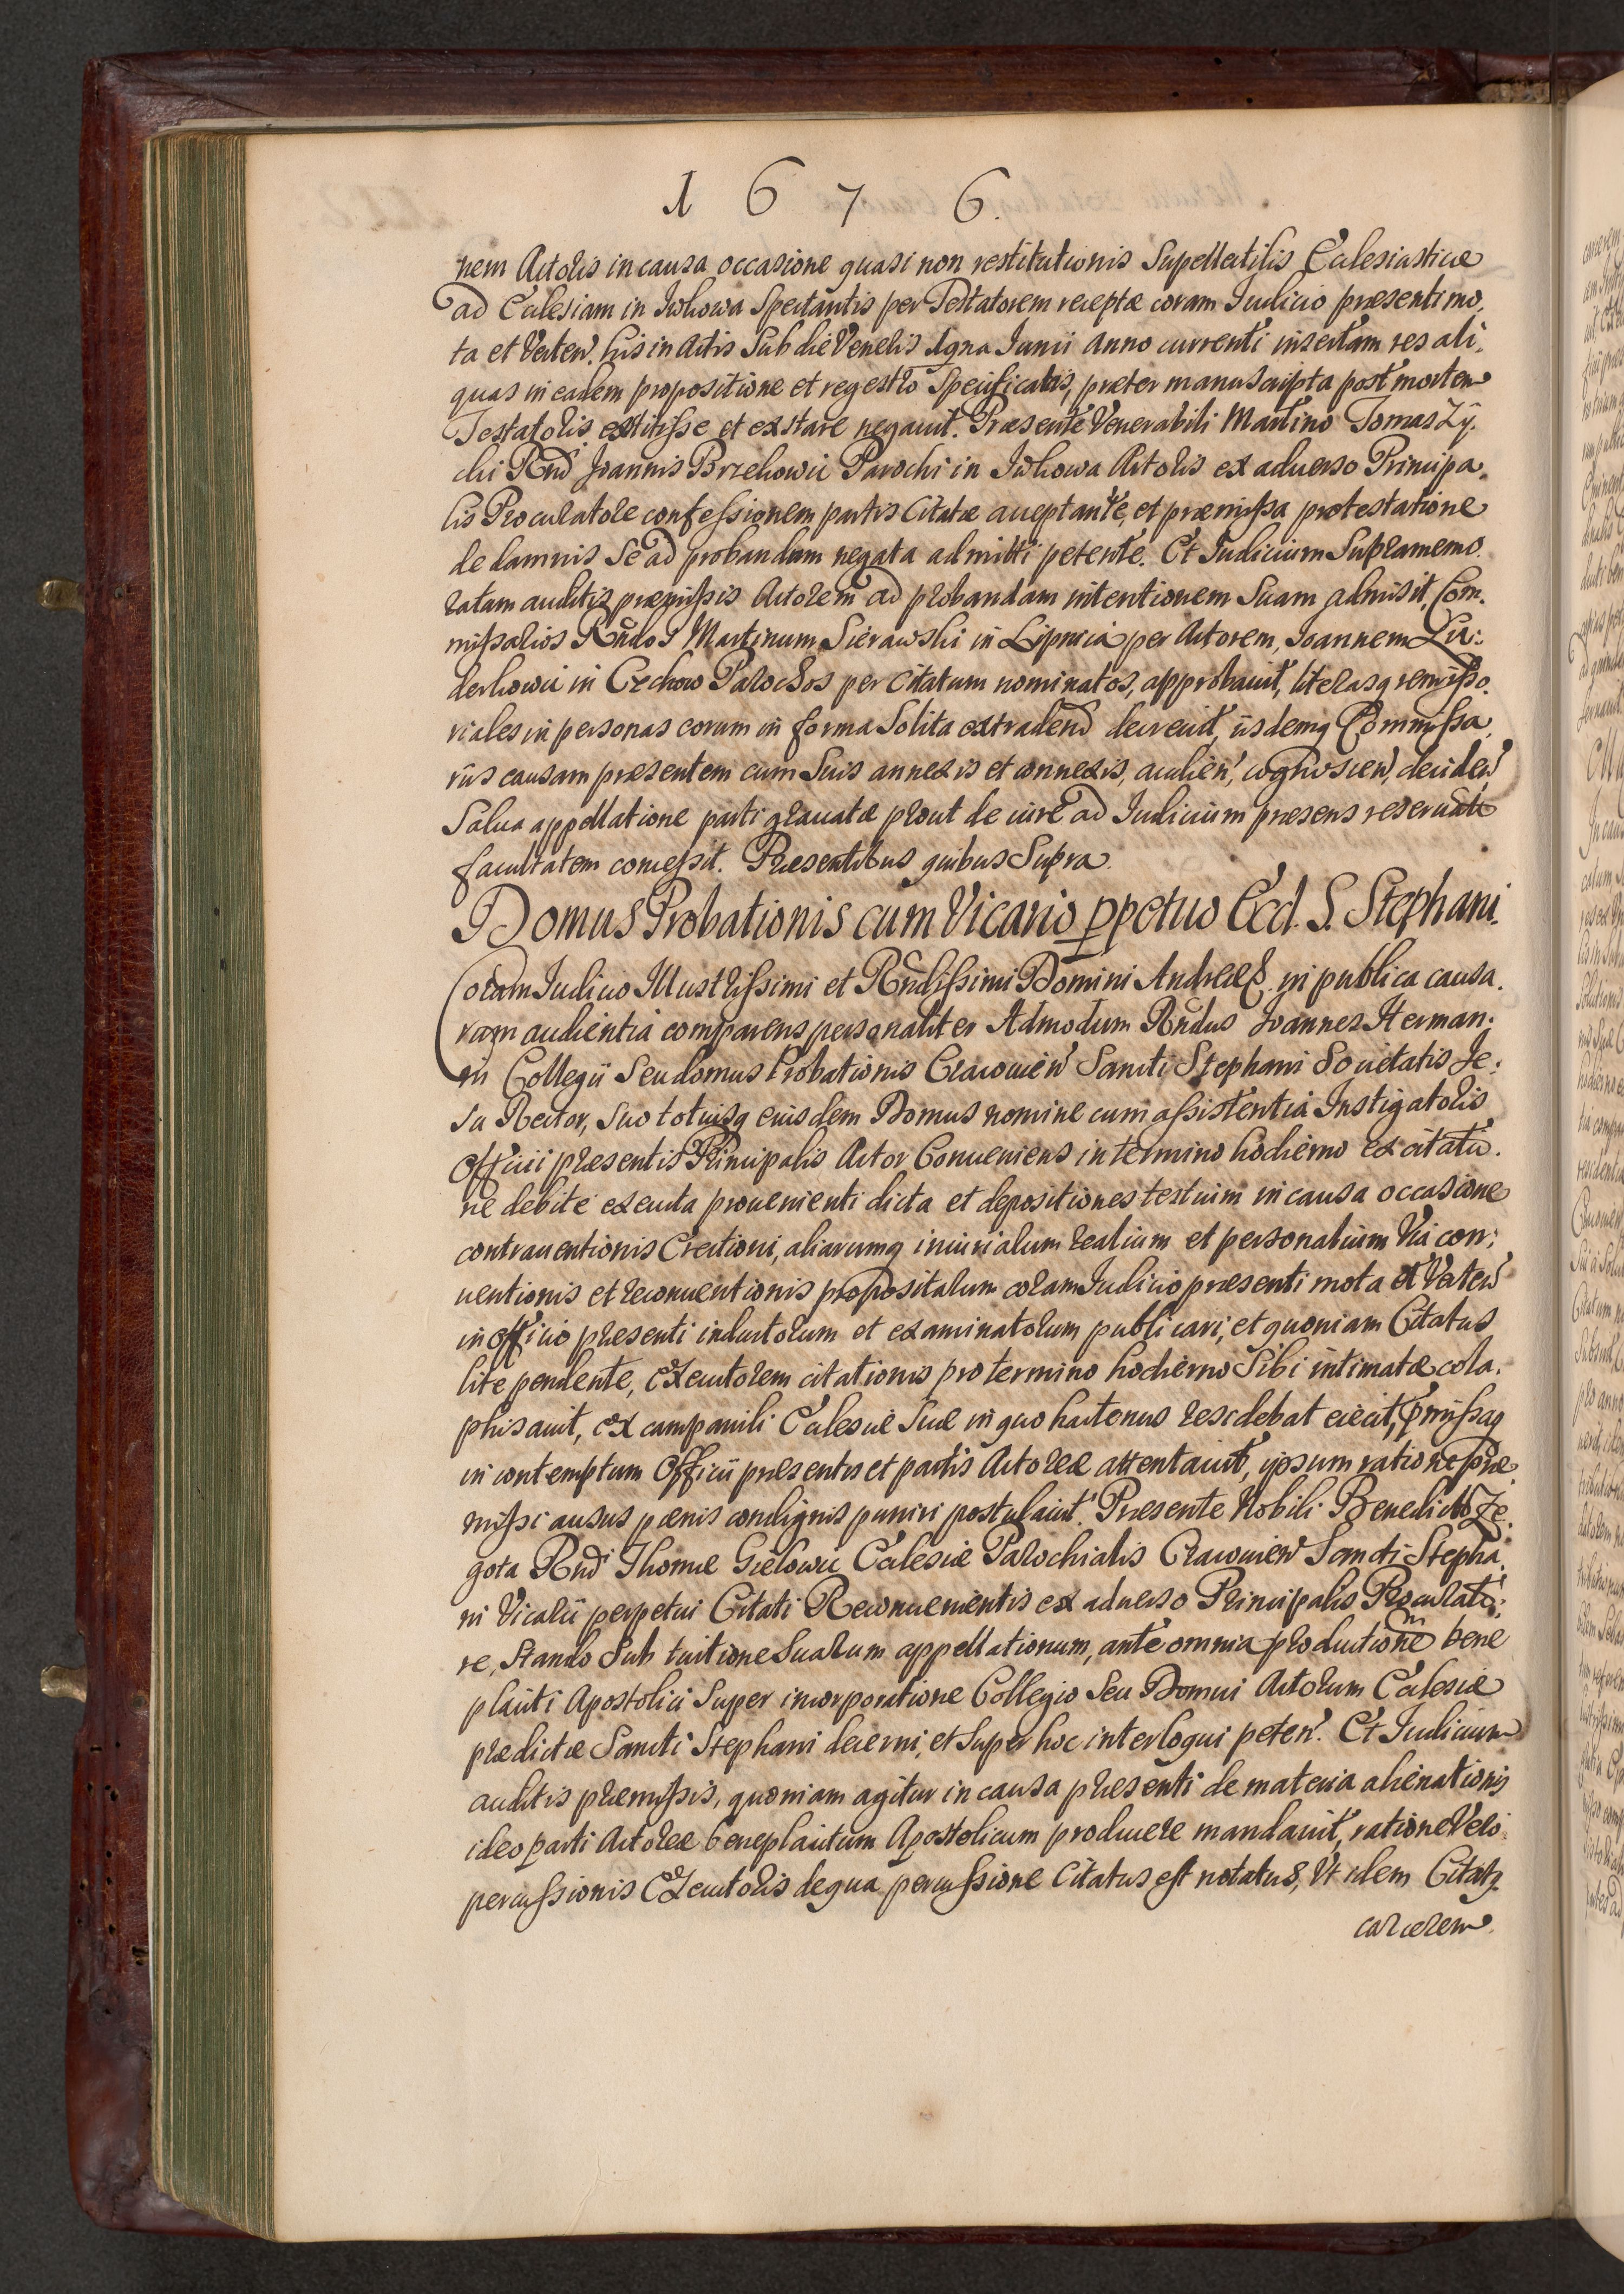 1676.
nem Actoris in causa occasione quasi non restitutionis Supellectilis Ecclesiasticæ
ad Ecclesiam in Iwkowa Spectantis per Testatorem receptæ coram Iudicio præsenti mo,
ta et Verten̄. his in Actis Sub die Veneris 19na Iunii Anno currenti insertam res ali,
quas in eadem propositione et regestro Specificatas, præter manuscripta post mortem
Testatoris extitisse et exstare negavit. Præsente Venerabili Martino Tomaszy,
cki Rnd̄i Joannis Brzechowic Parochi in Iwkowa Actoris ex adverso Principa,
lis Procuratore confessionem partis Citatæ acceptante, et præmissa protestatione
de damnis Se ad probandum negata admitti petente. Et Iudicium Supramemo,
ratum auditis præmissis Actorem ad probandam intentionem Suam admisit, Com,
missarios Rndos Martinum Sierawski in Lipnica per Actorem, Joannem
in Czchow Parochos per Citatum nominatos, approbavit, literasq remisso,
riales in personas eorum in forma Solita extraden̄d decrevit, iisdemq Commissa,
riis causam præsentem cum Suis annexis et connexis, audien̄, cognoscen̄, deciden̄
Salva appellatione parti gravatæ prout de iure ad Iudicium præsens reservata
facultatem concessit. Præsentibus quibus Supra.
Domus Probationis cum Vicario ꝑpetuo Eccl. S. Stephani.
Coram Iudicio Illustrissimi et Rndissimi Domini Andreæ &. in publica causa,
rum audientia comparens personaliter Admodum Rndus Joannes Herman,
ni Collegii Seu domus Probationis Cracovien̄ Sancti Stephani Societatis Je,
su Rector, suo totiusq eiusdem Domus nomine cum assistentia Instigatoris
Officii præsentis Principalis Actor Conveniens in termino hodierno ex citatio,
ne debite executa provenienti dicta et depositiones testium in causa occasione
contraventionis Erectioni, aliarumq iniuriarum realium et personalium Via con,
ventionis et reconventionis propositarum coram Iudicio præsenti mota et Verten̄
in officio præsenti inductorum et examinatorum publicari, et quoniam Citatus
lite pendente, Executorem citationis pro termino hodierno Sibi intimatæ cola,
phisavit, ex campanili Ecclesiæ Suæ in quo hactenus residebat eiecit, p̄missaq
in contemptum Officii præsentis et partis Actoreæ attentavit, ipsum ratione præ,
missi ausus pænis condignis puniri postulavit. Præsente Nobili Benedicto Ze,
gota Rnd̄i Thomæ Gielowic Ecclesiæ Parochialis Cracovien̄ Sancti Stepha,
ni Vicarii perpetui Citati Reconvenientis ex adverso Principalis Procurato,
re, Stando Sub tuitione Suarum appellationum, ante omnia productionem bene
placiti Apostolici Super incorporatione Collegio Seu Domui Actorum Ecclesiæ
prædictæ Sancti Stephani decerni, et Super hoc interloqui peten̄. Et Iudicium
auditis præmissis, quoniam agitur in causa præsenti de materia alienationis
ideo parti Actoreæ beneplacitum Apostolicum producere mandavit, ratione Vero
percussionis Executoris de qua percussione Citatus est notatus, Vt idem Citatꝫ
carcerem